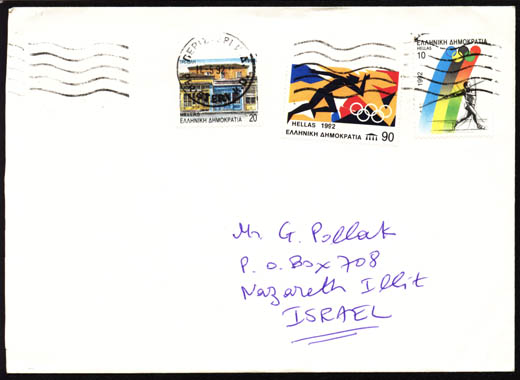 ΕΛΛΗΝΙΚΗ ΔΗΜΟΚΡΑΤΙΑ
HELLAS
10
1992
HELLAS
20
ΕΛΛΗΝΙΚΗ ΔΗΜΟΚΡΑΤΙΑ
HELLAS 1992
ΕΛΛΗΝΙΚΗ ΔΗΜΟΚΡΑΤΙΑ 90
Mr G. Pollak
P.O.Box 708
Nazareth Illit
ISRAEL